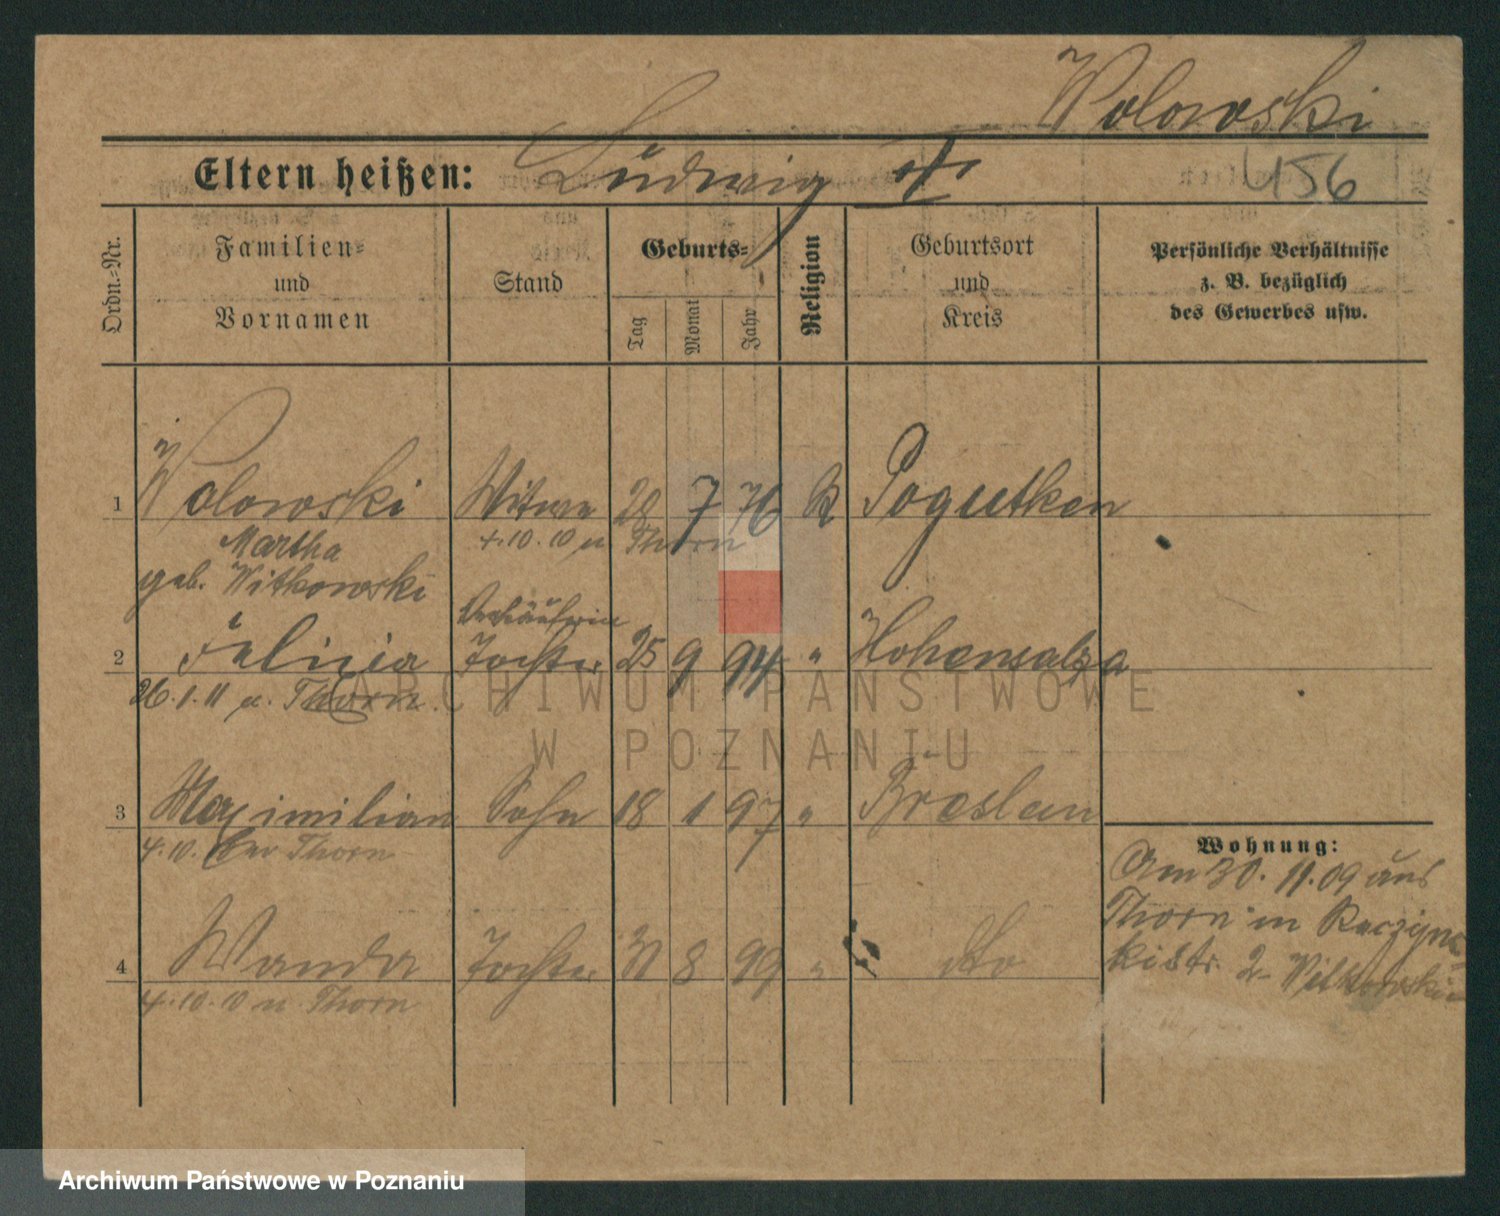 Wolowski
Eltern heißen: Ludwig †
456
Ordn.-Nr.
Familien-
und
Vornamen
Stand
Geburts-
Tag
Monat
Jahr
Religion
Geburtsort
und
Kreis
Persönliche Verhältnisse
z. B. bezüglich
des Gewerbes usw.
1 Wolowski Witwe 28 7 76 K Pogutken
Martha 4.10.10 n Thorn
geb. Witkowski
Verkäuferin
2 Felicia Tochter 25 9 94 " Hohensalza
26.1.11 n. Thorn.
ARCHIWUM PAŃSTWOWE
W POZNANIU
3 Maximilian Sohn 18 1 97 " Breslau
4.10. Thorn
4 Wanda Tochter 31 8 99 " dto
4.10.10 n. Thorn
Wohnung:
Am 30.11.09 aus
Thorn in Raczyns-
kistr. 2 Witkowski
Archiwum Państwowe w Poznaniu